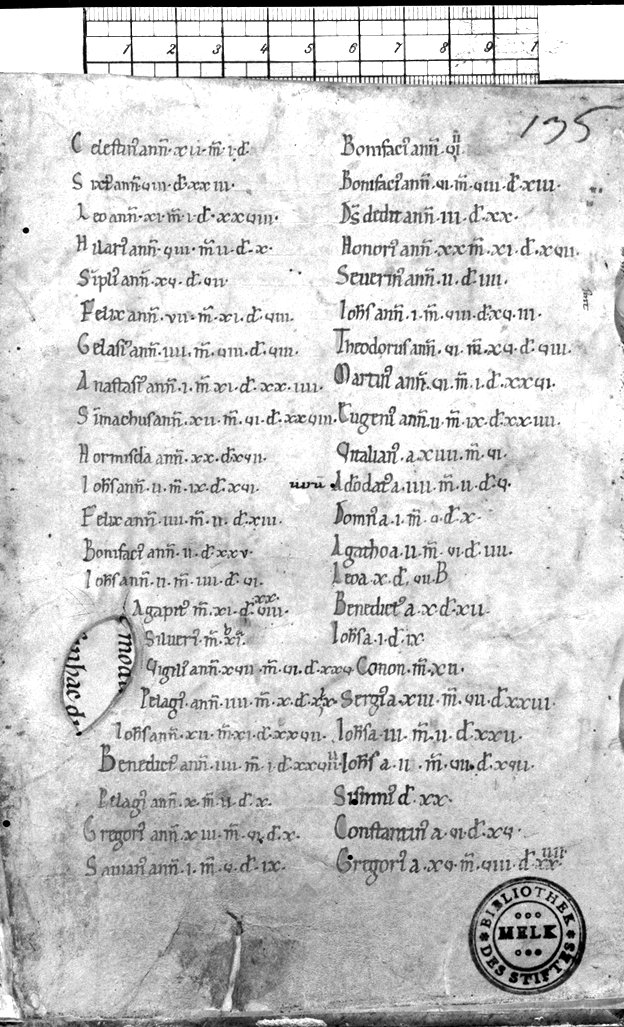 1 2 3 4 5 6 7 8 9 1
135
Celestin᷒ ann̄·x·ii·m̄·i·d̄·
Sixt᷒ ann̄·viii·d̄·xxiii·
Leo ann̄·xi·m̄·i·d̄·xxviii·
Hilari᷒ ann̄·viii·m̄·ii·d̄·x·
Sīpli᷒ ann̄·xv·d̄·vii·
Felix ann̄·vii·m̄·xi·d̄·viii·
Gelasi᷒ ann̄·iiii·m̄·viii·d̄·viii·
Anastasi᷒ ann̄·i·m̄·xi·d̄·xx·iiii·
Sīmachus ann̄·xii·m̄·vi·d̄·xxviii·
Hormisda ann̄·xx·d̄·xvii·
Ioh̄s ann̄·ii·m̄·ix·d̄·xvi·
Felix ann̄·iiii·m̄·ii·d̄·xiii·
Bonifaci᷒ ann̄·ii·d̄·xxv·
Ioh̄s ann̄·ii·m̄·iiii·d̄·vi·
xx·
Agapit᷒ m̄·xi·d̄·viii·
Silueri᷒ m̄·
moan
in hac d
Vigili᷒ ann̄·xvii·m̄·vi·d̄·xxv
Pelagi᷒ ann̄·iiii·m̄·x·d̄·
Ioh̄s ann̄·xii·m̄·xi·d̄·xxvii·
Benedict᷒ ann̄·iiii·m̄·i·d̄·
Pelagi᷒ ann̄·x·m̄·ii·d̄·x·
Gregori᷒ ann̄·xiii·m̄·vi·d̄·x·
Sauian᷒ ann̄·i·m̄·v·d̄·ix·
Bonifaci᷒ ann̄·
Bonifaci᷒ ann̄·vi·m̄·viii·d̄·xiii·
D̄s dedit ann̄·iii·d̄·xx·
Honori᷒ ann̄·xx m̄·xi·d̄·xvii·
Seuerin᷒ ann̄·ii·d̄·iiii·
Ioh̄s ann̄·i·m̄·viii·d̄·xviii·
Theodorus ann̄·vi·m̄·xv·d̄·viii·
Martin᷒ ann̄·vi·m̄·i·d̄·xxvi·
Eugeni᷒ ann̄·ii·m̄·ix·d̄·xx·iiii·
Vitalian᷒·a·xiiii·m̄·vi·
Adodat᷒ a·iiii·m̄·ii·d̄·v·
Domn᷒ a·i·m̄·v·d̄·x·
Agatho a·ii·m̄·vi·d̄·iiii·
Leo a·x·d̄·vii B
Benedict᷒ a·x·d̄·xii·
Ioh̄s a·i·d̄·ix·
Conon·m̄·xii·
Sergi᷒ a·xiii·m̄·vii·d̄·xxiii·
Ioh̄s a·iii·m̄·ii·d̄·xxii·
Ioh̄s a·ii·m̄·vii·d̄·xvii·
Sisinni᷒ d̄·xx·
Constantin᷒ a·vi·d̄·xv·
iiii
Gregori᷒ a·xv·m̄·viii·d̄·xx·
BIBLIOTHEK
MELK
DES STIFTES